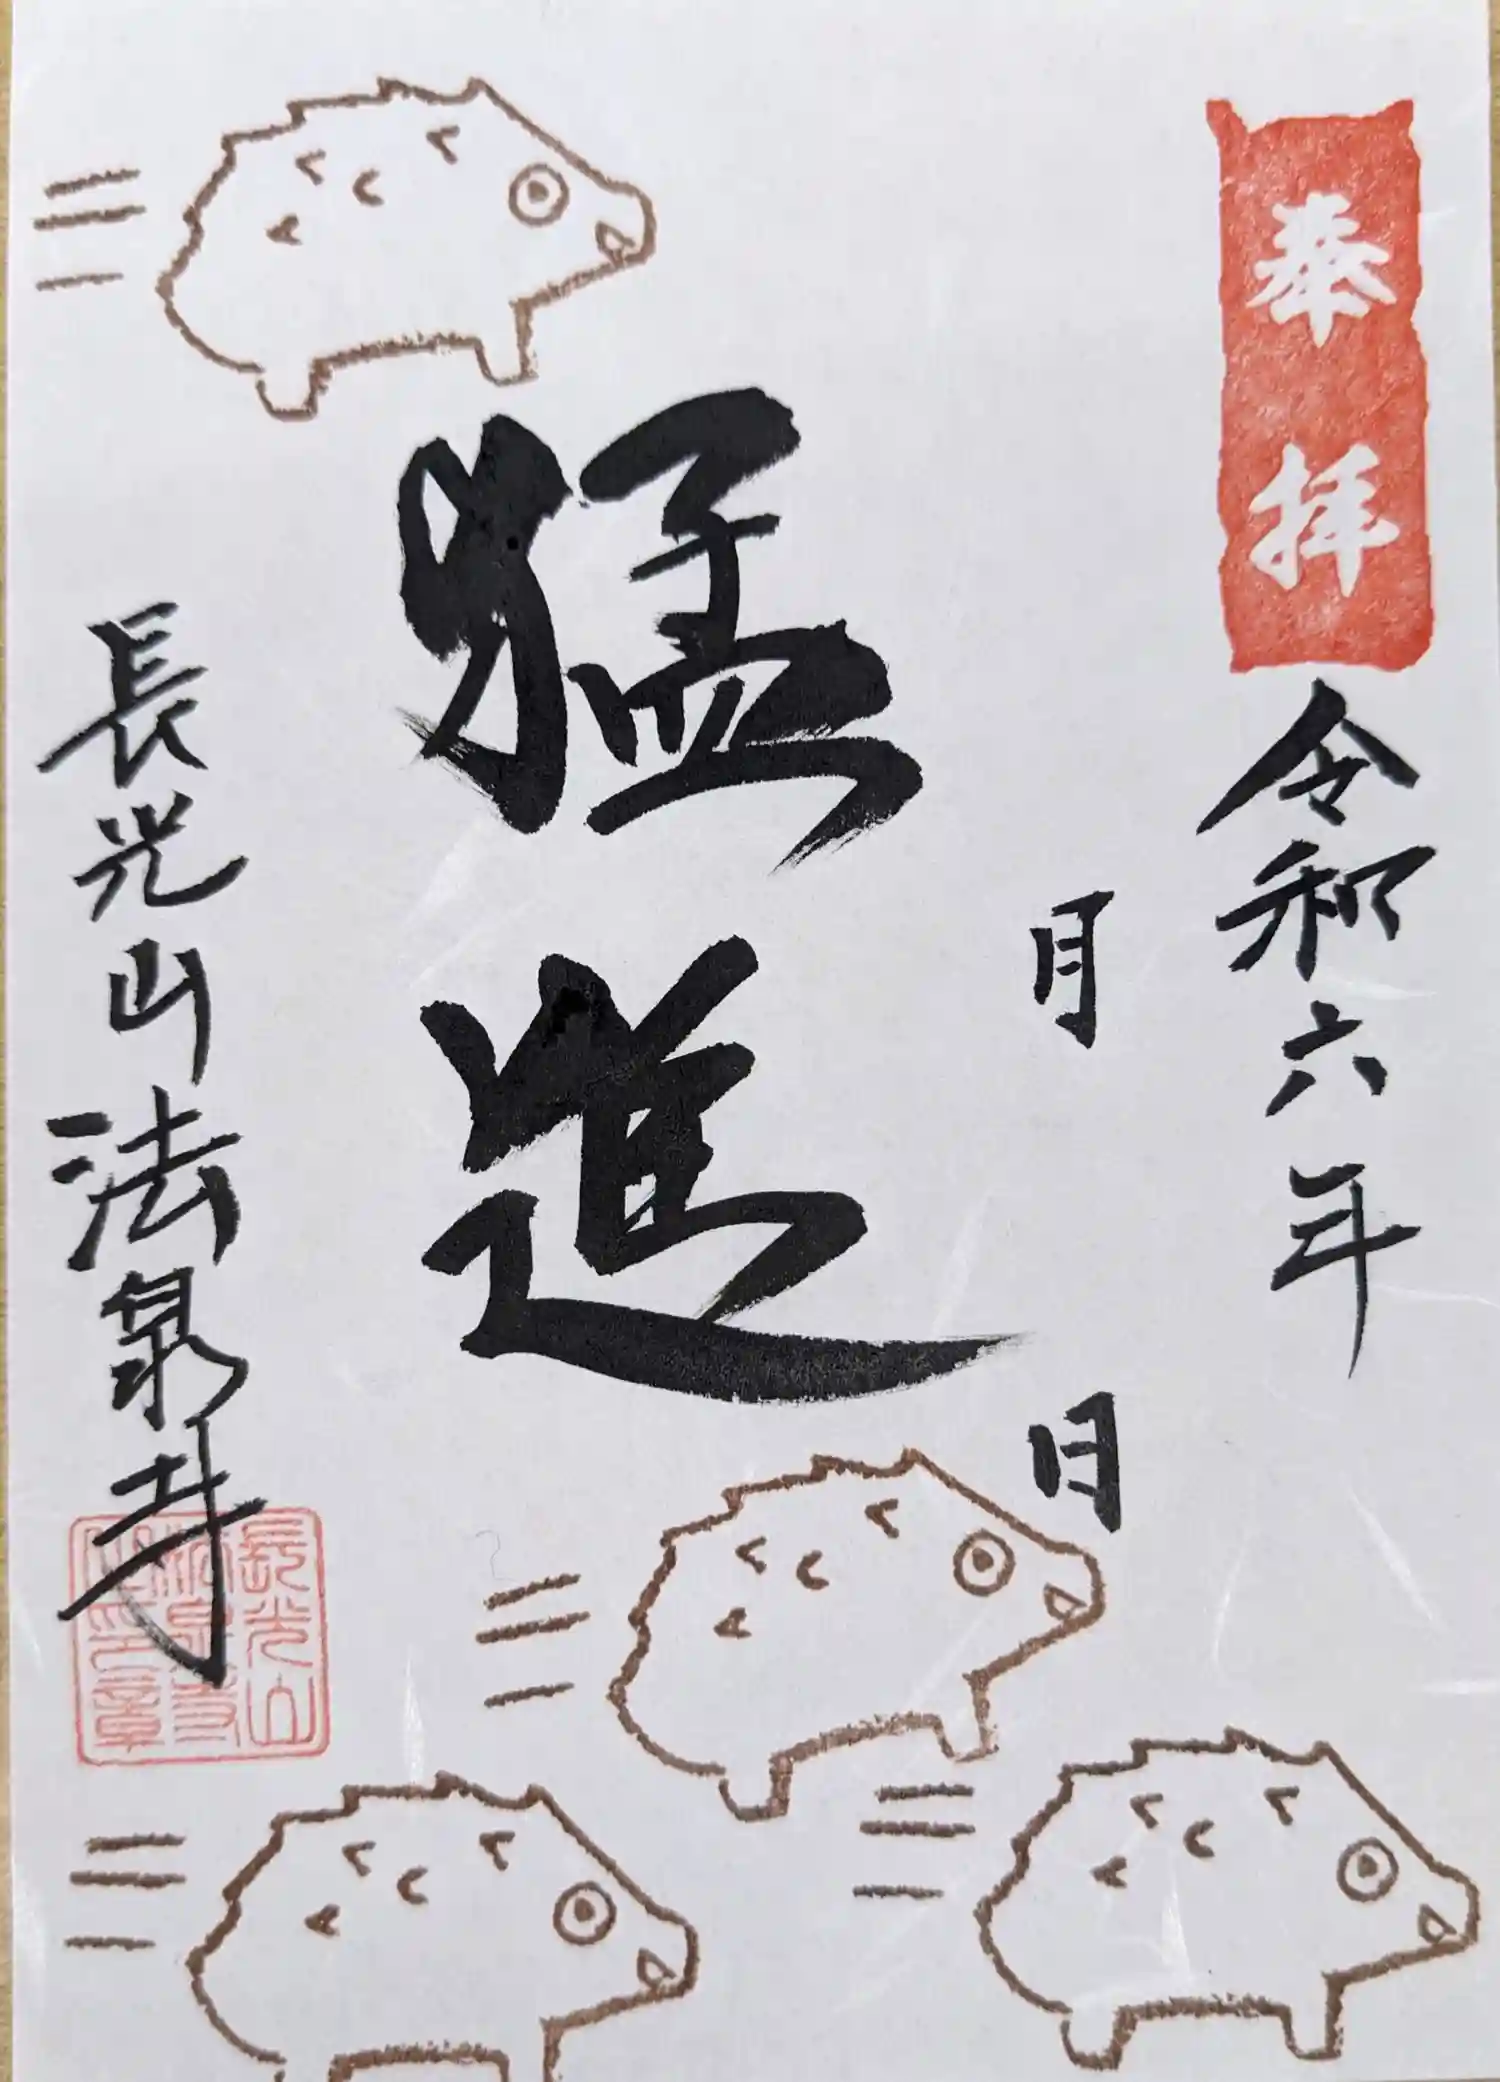 奉拝
令和六年
月
日
猛進
長光山法泉寺
長光山
法泉寺
之印章